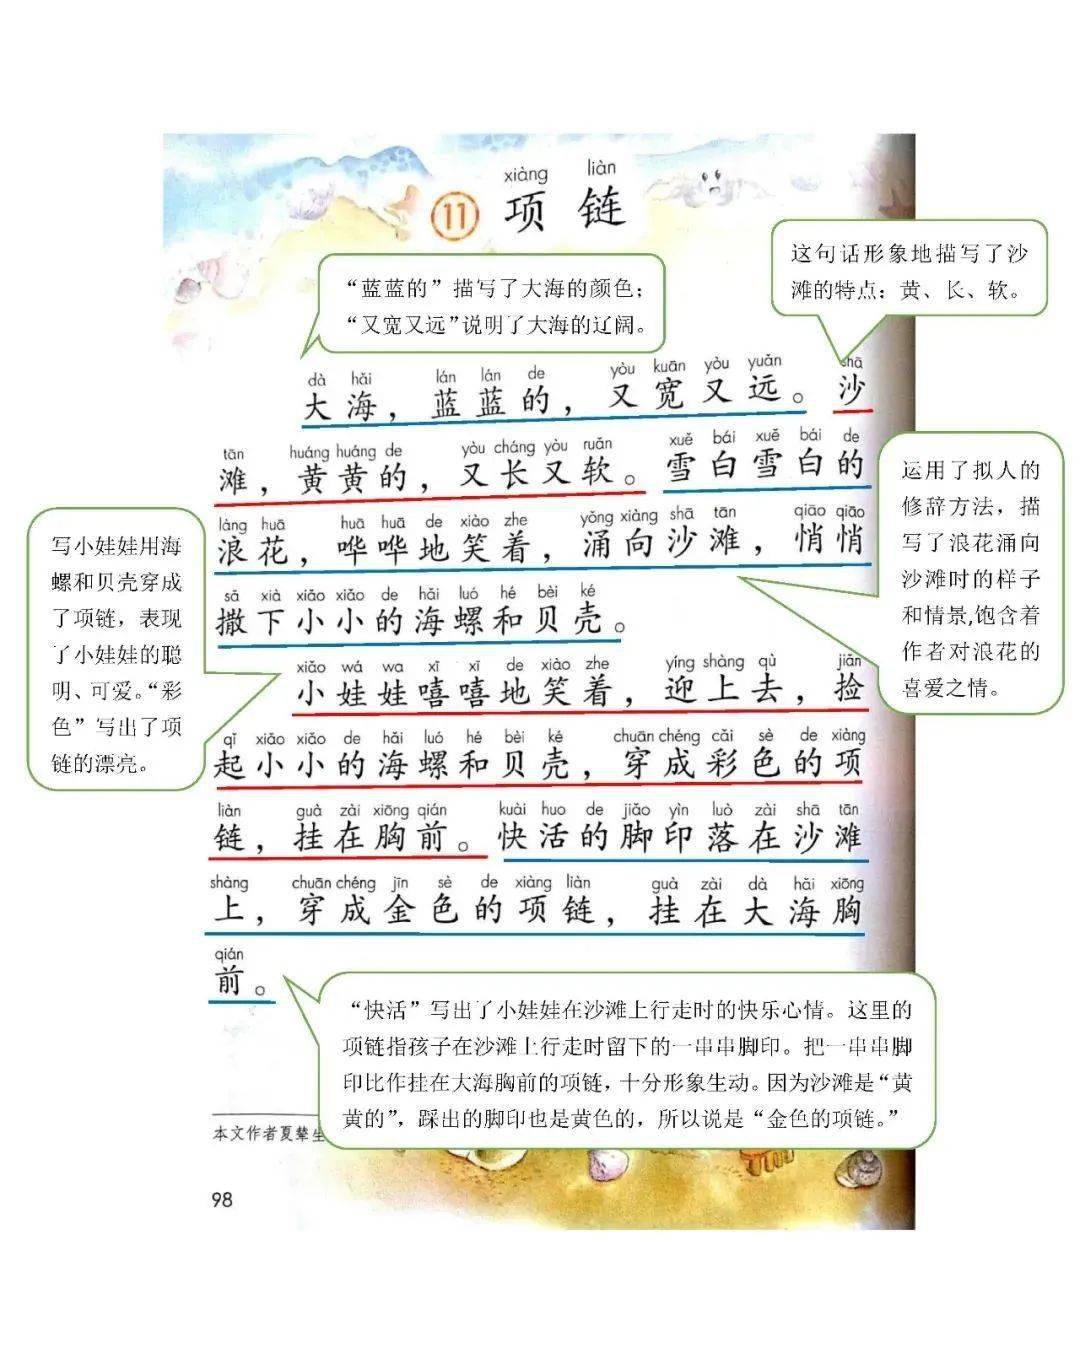 xiàng liàn
11 项链
这句话形象地描写了沙
滩的特点：黄、长、软。
“蓝蓝的”描写了大海的颜色；
“又宽又远”说明了大海的辽阔。
dà hǎi lán lán de yòu kuān yòu yuǎn shā
大海，蓝蓝的，又宽又远。沙
tān huáng huáng de yòu cháng yòu ruǎn xuě bái xuě bái de
滩，黄黄的，又长又软。雪白雪白的
làng huā huā huā de xiào zhe yǒng xiàng shā tān qiāo qiāo
浪花，哗哗地笑着，涌向沙滩，悄悄
sǎ xià xiǎo xiǎo de hǎi luó hé bèi ké
撒下小小的海螺和贝壳。
xiǎo wá wa xī xī de xiào zhe yíng shàng qù jiǎn
小娃娃嘻嘻地笑着，迎上去，捡
qǐ xiǎo xiǎo de hǎi luó hé bèi ké chuān chéng cǎi sè de xiàng
起小小的海螺和贝壳，穿成彩色的项
liàn guà zài xiōng qián kuài huo de jiǎo yìn luò zài shā tān
链，挂在胸前。快活的脚印落在沙滩
shàng chuān chéng jīn sè de xiàng liàn guà zài dà hǎi xiōng
上，穿成金色的项链，挂在大海胸
qián
前。
运用了拟人的
修辞方法，描
写了浪花涌向
沙滩时的样子
和情景,饱含着
作者对浪花的
喜爱之情。
写小娃娃用海
螺和贝壳穿成
了项链，表现
了小娃娃的聪
明、可爱。“彩
色”写出了项
链的漂亮。
“快活”写出了小娃娃在沙滩上行走时的快乐心情。这里的
项链指孩子在沙滩上行走时留下的一串串脚印。把一串串脚
印比作挂在大海胸前的项链，十分形象生动。因为沙滩是“黄
黄的”，踩出的脚印也是黄色的，所以说是“金色的项链。”
本文作者夏辇生
98